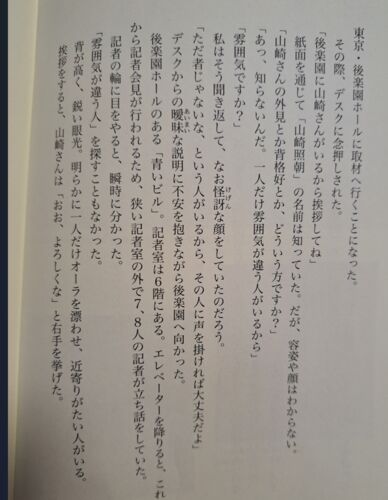 東京・後楽園ホールに取材へ行くことになった。
その際、デスクに念押しされた。
「後楽園に山崎さんがいるから挨拶してね」
紙面を通じて「山崎照朝」の名前は知っていた。だが、容姿や顔はわからない。
「山崎さんの外見とか背格好とか、どういう方ですか？」
「あっ、知らないんだ。一人だけ雰囲気が違う人がいるから」
「雰囲気ですか？」
私はそう聞き返して、なお怪訝な顔をしていたのだろう。
「ただ者じゃないな、という人がいるから、その人に声を掛ければ大丈夫だよ」
デスクからの曖昧な説明に不安を抱きながら後楽園へ向かった。
後楽園ホールのある「青いビル」。記者室は6階にある。エレベーターを降りると、これ
から記者会見が行われるため、狭い記者室の外で7、8人の記者が立ち話をしていた。
記者の輪に目をやると、瞬時に分かった。
「雰囲気が違う人」を探すこともなかった。
背が高く、鋭い眼光。明らかに一人だけオーラを漂わせ、近寄りがたい人がいる。
挨拶をすると、山崎さんは「おお、よろしくな」と右手を挙げた。